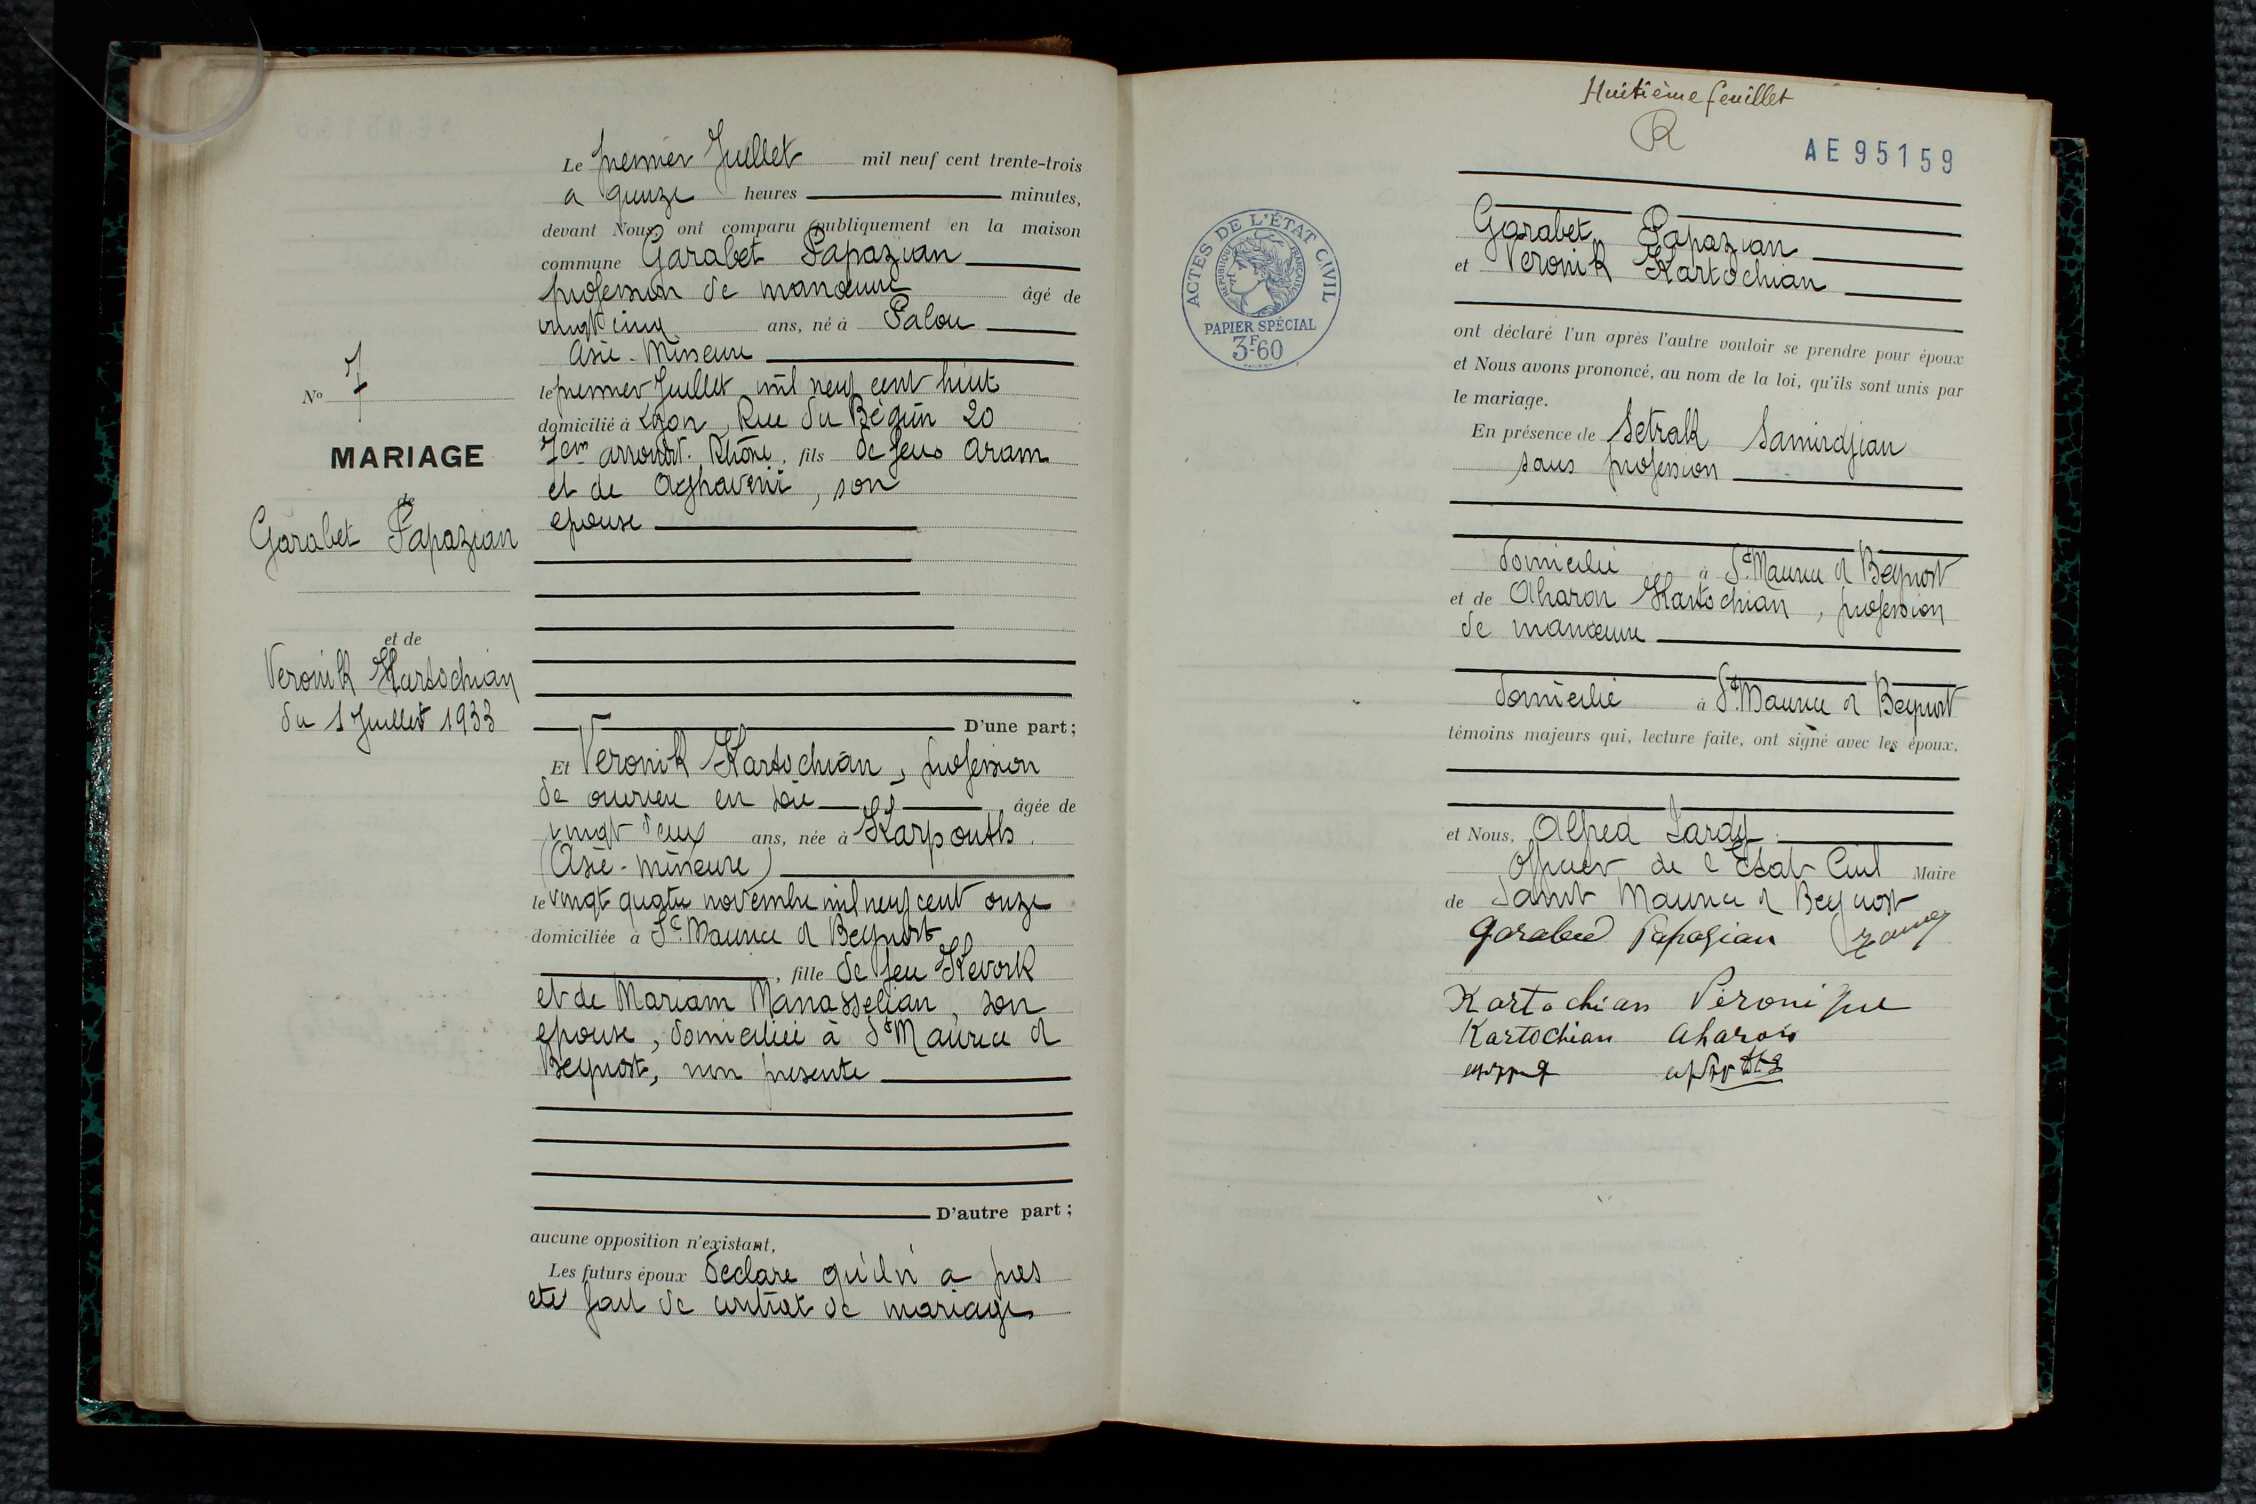 Le premier Juillet mil neuf cent trente-trois
a quinze heures minutes,
devant Nous, ont comparu publiquement en la maison
commune Garabet Papazian
profession de manœuvre âgé de
vingt cinq ans, né à Palou
Asie-Mineure
le premier Juillet mil neuf cent huit
domicilié à Lyon, Rue du Béguin 20
7em arrondt. Rhône, fils de feus Aram
et de Aghavenï, son
epouse
D'une part;
Nº 7
MARIAGE
de
Garabet Papazian
et de
Veronik Kartochian
du 1 Juillet 1933
Et Veronik Kartochian, profession
de ouvriere en soie âgée de
vingt deux ans, née à Karpouth.
(Asie-mineure)
le vingt quatre novembre mil neuf cent onze
domiciliée à St Maurice d Beynost
, fille de feu Kevork
et de Mariam Manasselian, son
epouse, domiciliée à St Maurice d
Beynost, non presente
D'autre part;
aucune opposition n'existant,
Les futurs époux declare qu'il n'a pas
eté fait de contrat de mariage
Huitième feuillet
R
AE95159
ACTES DE L'ÉTAT CIVIL
RÉPUBLIQUE FRANÇAISE
PAPIER SPÉCIAL
3F60
Garabet Papazian
et Veronik Kartochian
ont déclaré l'un après l'autre vouloir se prendre pour époux
et Nous avons prononcé, au nom de la loi, qu'ils sont unis par
le mariage.
En présence de Setrak Samirdjian
sans profession
domicilié à St Maurice d Beynost
et de Aharon Kartochian, profession
de manœuvre
domicilié à St Maurice d Beynost
témoins majeurs qui, lecture faite, ont signé avec les époux.
et Nous, Alfred Lardy
Officier de l'Etat Civil Maire
de Saint Maurice d Beynost
Garabed Papazian
Kartochian Véronique
Kartochian Aharon